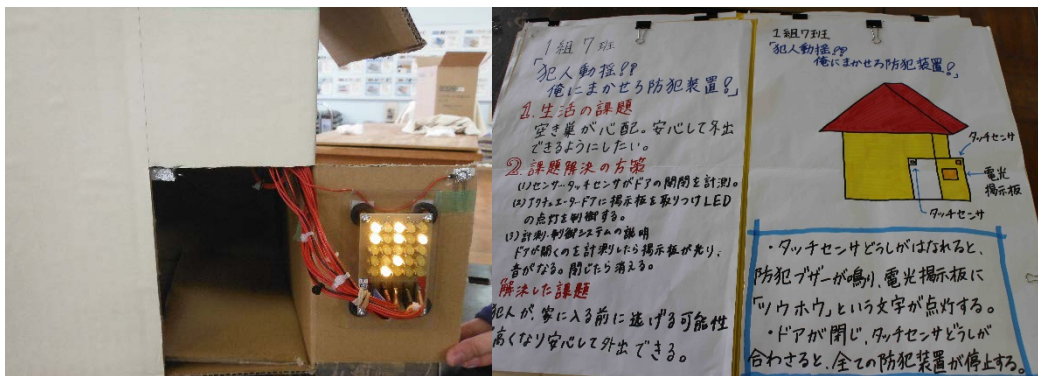 1組7班
「犯人動揺!?
俺にまかせろ防犯装置!」
1.生活の課題
空き巣が心配。安心して外出
できるようにしたい。
2.課題解決の方策
(1)センサ…タッチセンサがドアの開閉を計測。
(2)アクチュエータ…ドアに掲示板を取りつけLED
の点灯を制御する。
(3)計測・制御システムの説明
ドアが開くのを計測したら掲示板が光り、
音がなる。閉じたら消える。
解決した課題
犯人が、家に入る前に逃げる可能性
高くなり安心して外出できる。
1組7班
「犯人動揺!?
俺にまかせろ防犯装置!」
タッチセンサ
電光
掲示板
タッチセンサ
・タッチセンサどうしがはなれると、
防犯ブザーが鳴り、電光掲示板に
「ツウホウ」という文字が点灯する。
・ドアが閉じ、タッチセンサどうしが
合わさると、全ての防犯装置が停止する。